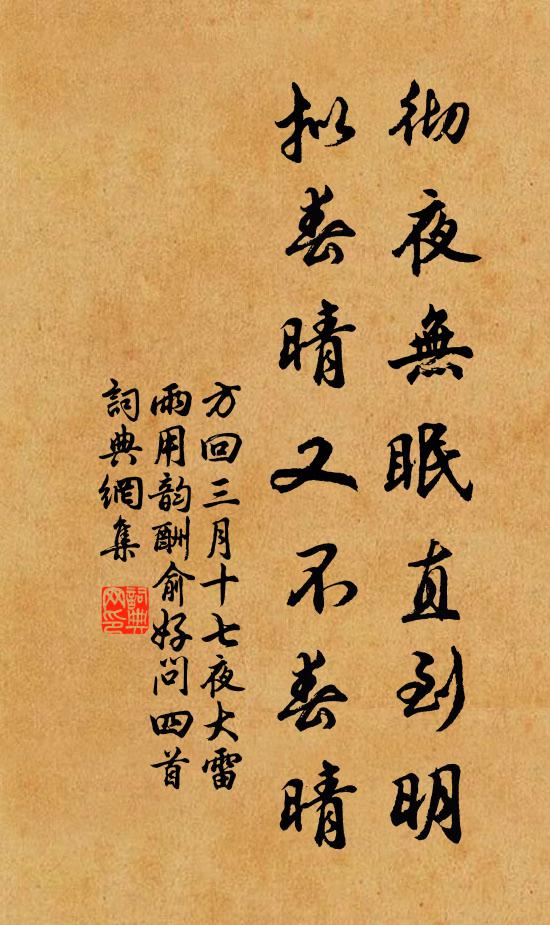 彻夜無眠直到明
拟春晴又不春晴
方回三月十七夜大雷
雨用韵酬俞好问四首
词典網集
词典
网印